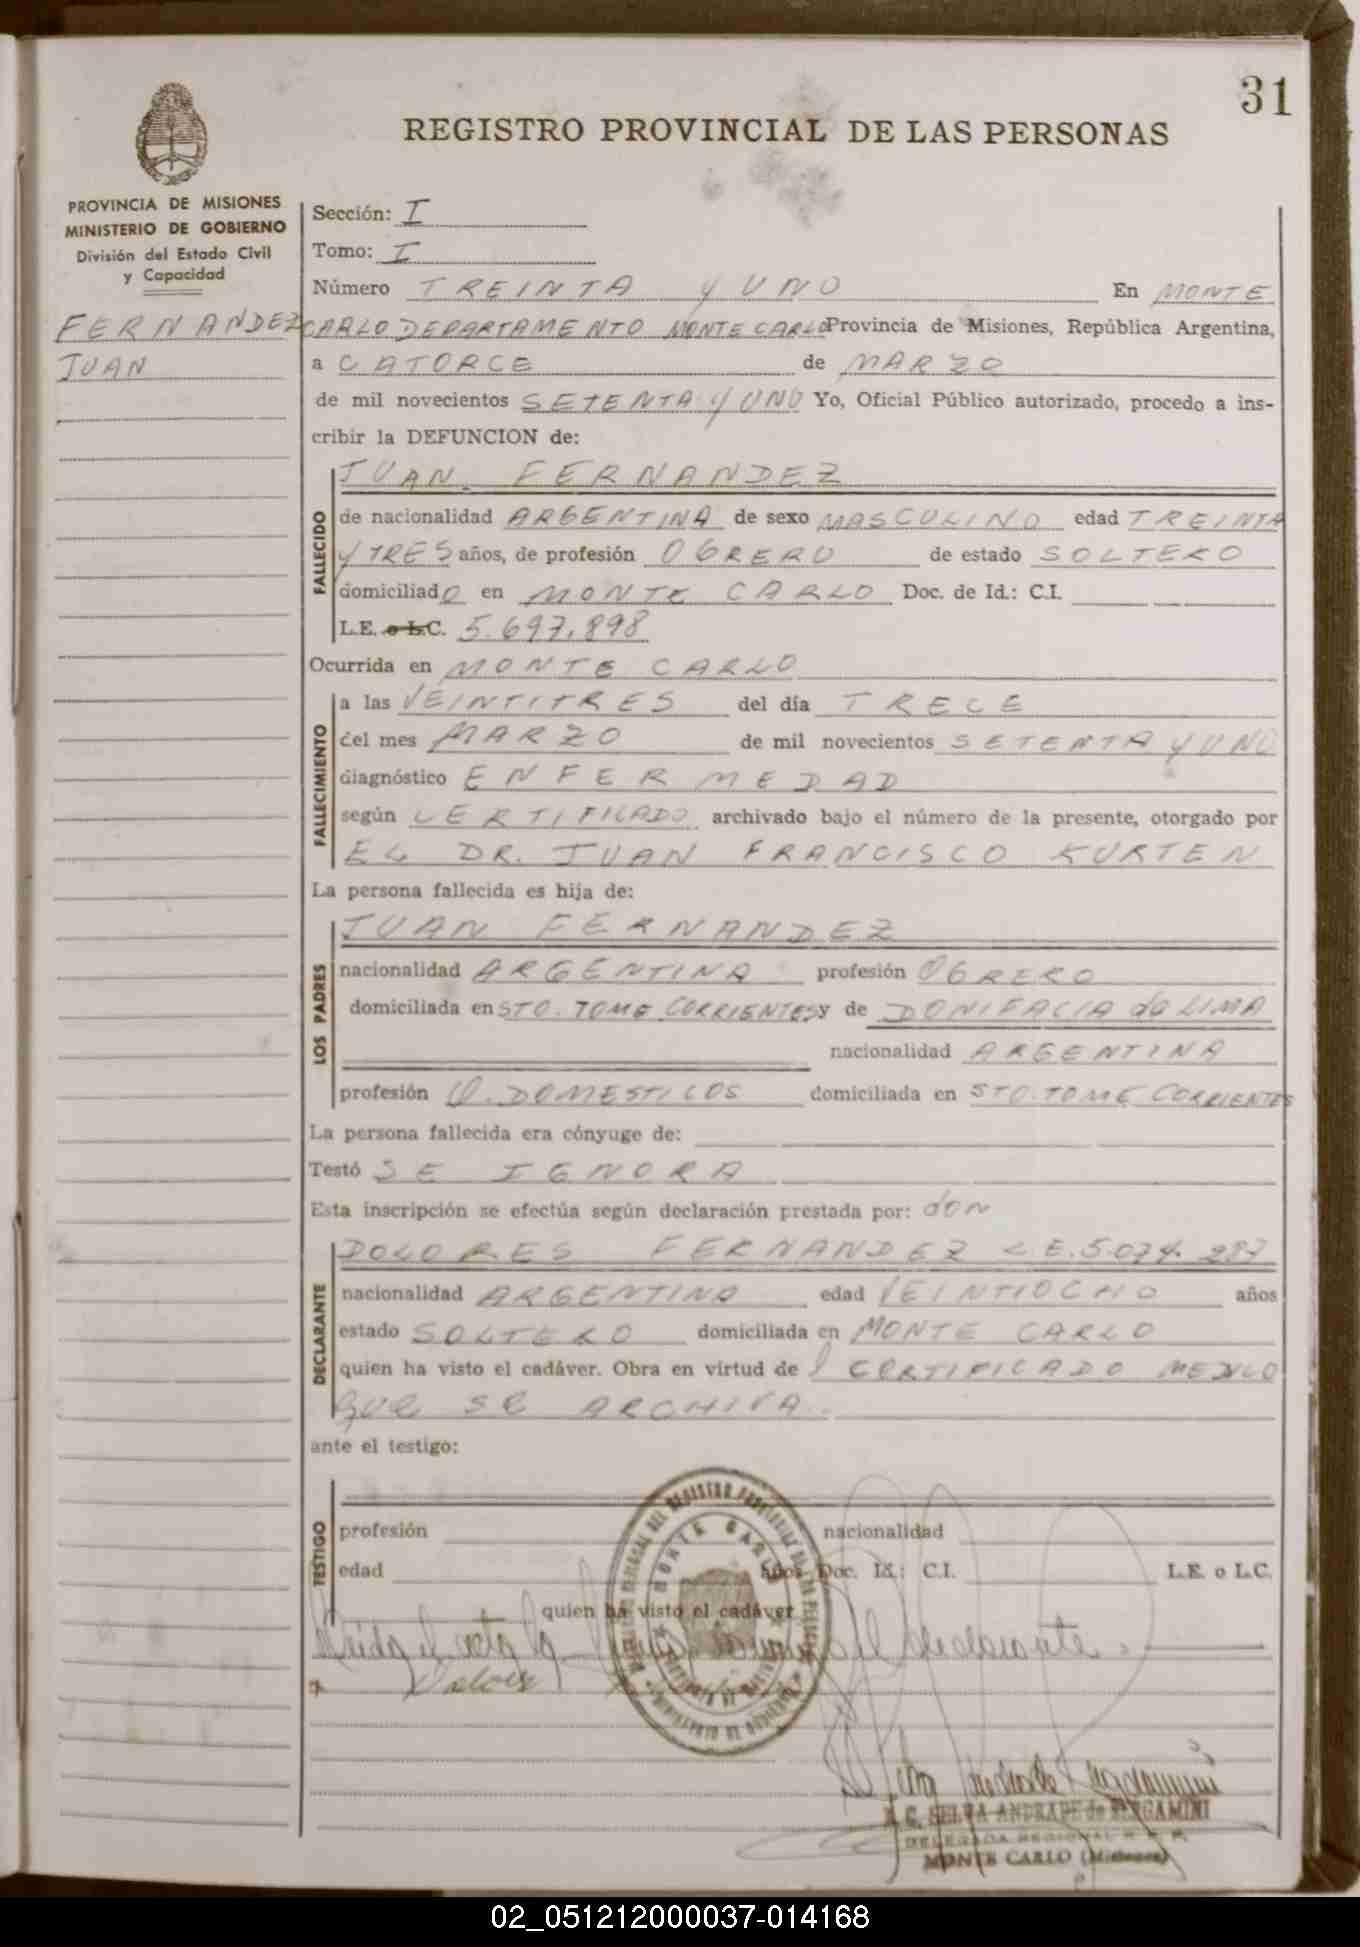 31
REGISTRO PROVINCIAL DE LAS PERSONAS
PROVINCIA DE MISIONES
MINISTERIO DE GOBIERNO
División del Estado Civil
y Capacidad
FERNANDEZ
JUAN
Sección: I
Tomo: I
Número TREINTA Y UNO En MONTE
CARLO DEPARTAMENTO MONTE CARLO Provincia de Misiones, República Argentina,
a CATORCE de MARZO
de mil novecientos SETENTA Y UNO Yo, Oficial Público autorizado, procedo a ins-
cribir la DEFUNCION de:
JUAN FERNANDEZ
FALLECIDO
de nacionalidad ARGENTINA de sexo MASCULINO edad TREINTA
Y TRES años, de profesión OBRERO de estado SOLTERO
domiciliado en MONTE CARLO Doc. de Id.: C.I.
L.E. o L.C. 5.697.898
Ocurrida en MONTE CARLO
FALLECIMIENTO
a las VEINTITRES del día TRECE
del mes MARZO de mil novecientos SETENTA Y UNO
diagnóstico ENFERMEDAD
según CERTIFICADO archivado bajo el número de la presente, otorgado por
EL DR. JUAN FRANCISCO KURTEN
La persona fallecida es hija de:
JUAN FERNANDEZ
LOS PADRES
nacionalidad ARGENTINA profesión OBRERO
domiciliada en STO. TOME CORRIENTES y de DONIFACIA da LIMA
nacionalidad ARGENTINA
profesión Q. DOMESTICOS domiciliada en STO. TOME CORRIENTES
La persona fallecida era cónyuge de:
Testó SE IGNORA
Esta inscripción se efectúa según declaración prestada por: don
DOLORES FERNANDEZ L.E. 5.074.287
DECLARANTE
nacionalidad ARGENTINA edad VEINTIOCHO años
estado SOLTERO domiciliada en MONTE CARLO
quien ha visto el cadáver. Obra en virtud de l CERTIFICADO MEDICO
que se ARCHIVA.
ante el testigo:
TESTIGO
profesión nacionalidad
edad años Doc. Id.: C.I. L.E. o L.C.
quien ha visto el cadáver
el acta del declarante.
MONTE CARLO
SELVA ANDRADE de BERGAMINI
DELEGADA REGIONAL R. P. P.
MONTE CARLO (Misiones)
02_051212000037-014168